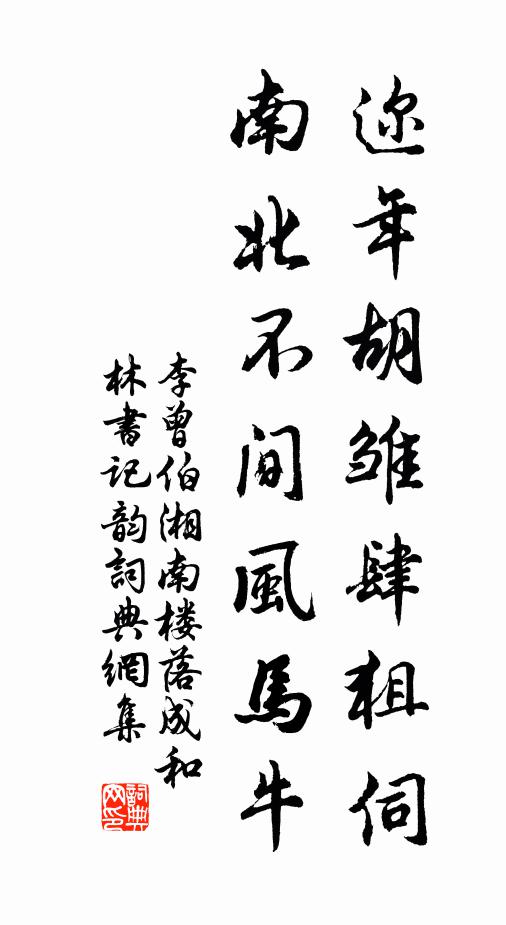 迩年胡雏肆狙伺
南北不间風馬牛
李曾伯湘南楼落成和
林書记韵詞典網集
詞典网印